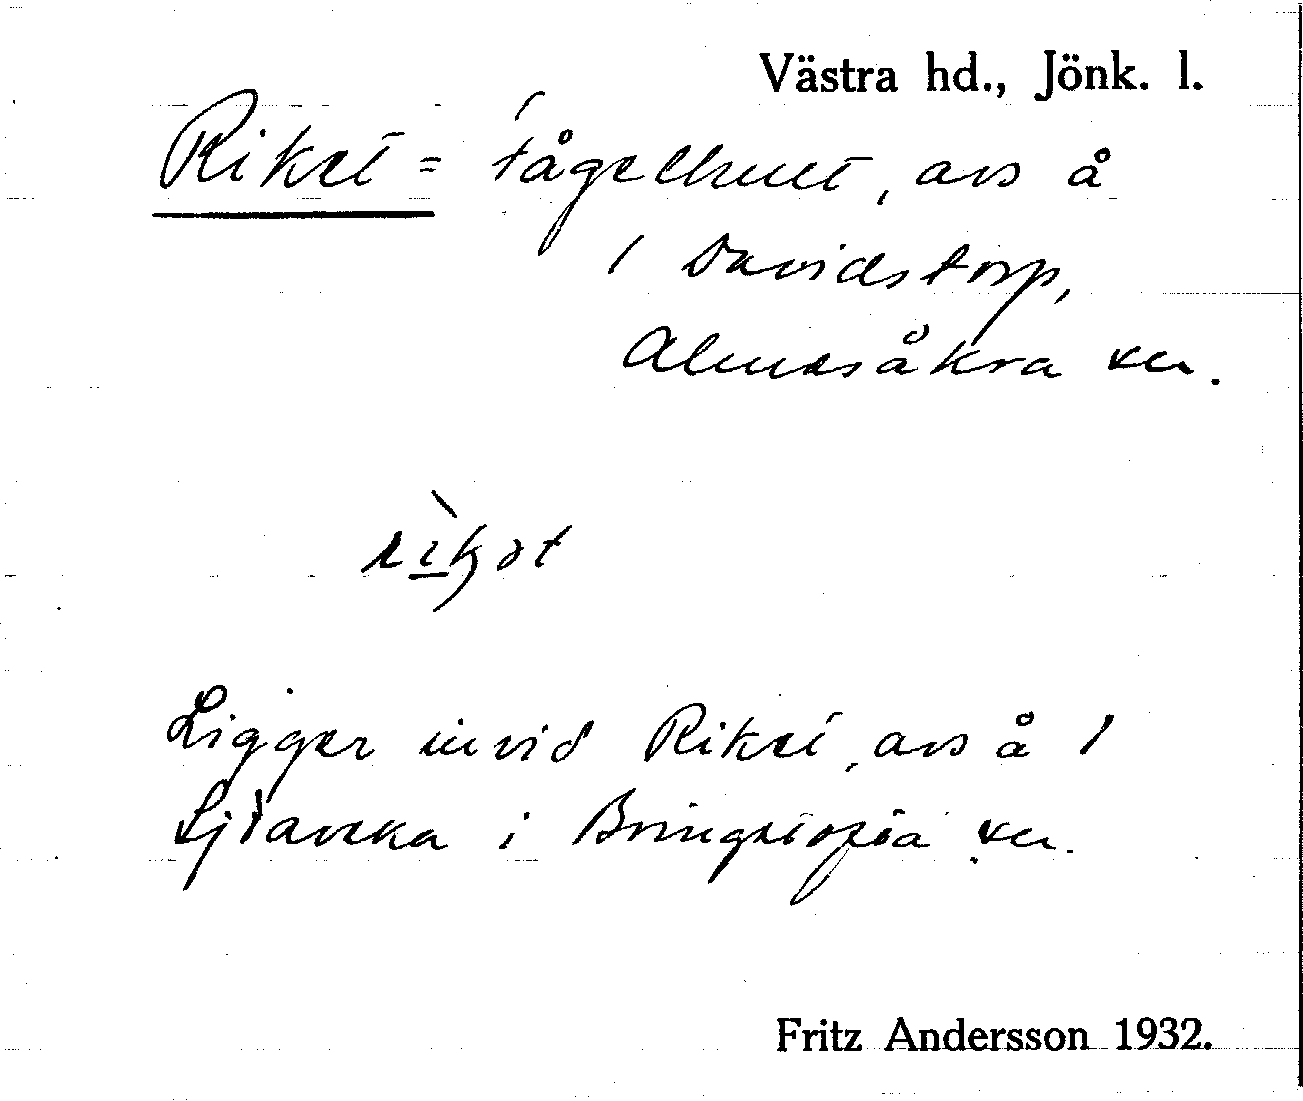 Västra hd., Jönk. l.
Riket = Fågelhult, avs å
1 Davidstorp,
Almesåkra sn.
rìkət
Ligger invid Riket, avs å 1
i Bringetofta sn.
Fritz Andersson 1932.